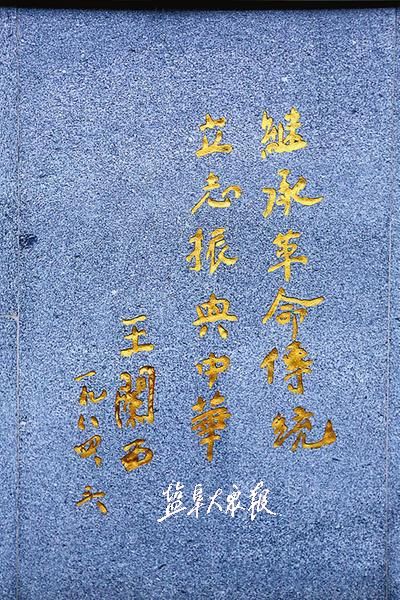 继承革命傳统
立志振兴中華
王阑西
一九八四、六
盐阜大众报